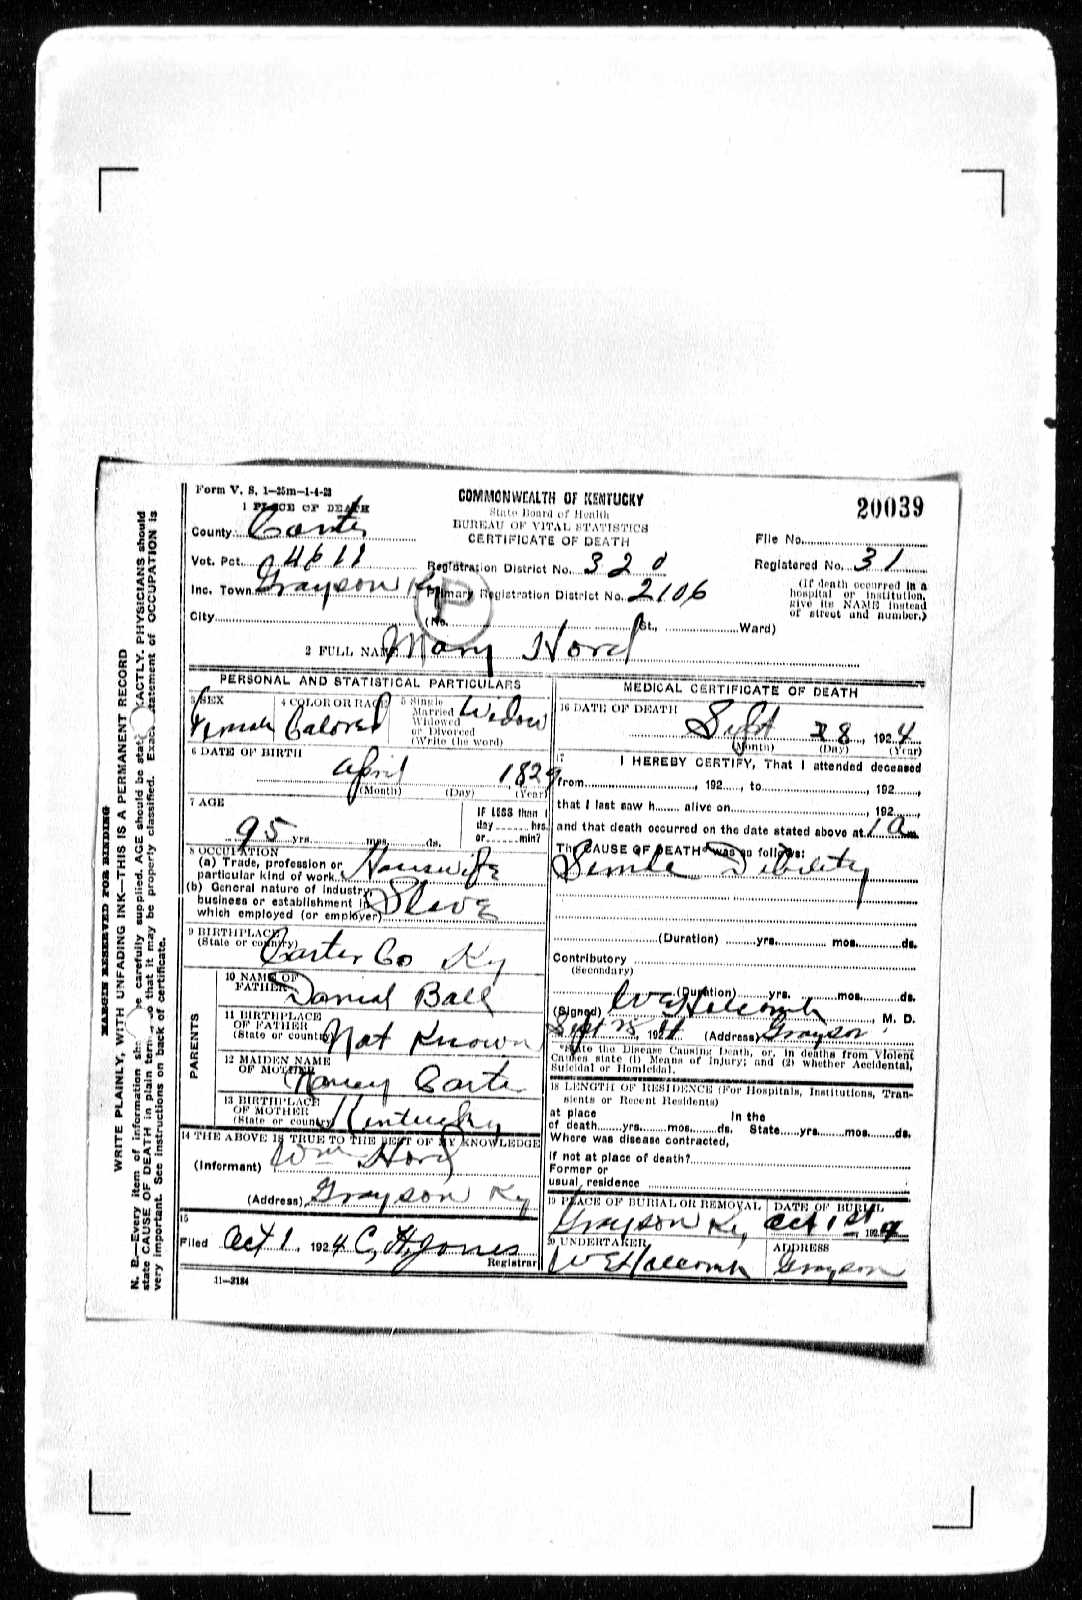 Form V. S. 1—25m—1-4-23
COMMONWEALTH OF KENTUCKY
State Board of Health
BUREAU OF VITAL STATISTICS
CERTIFICATE OF DEATH
20039
1 PLACE OF DEATH
County Carter
File No.
Vot. Pct.
Registration District No. 320
Registered No. 31
Inc. Town Grayson Ky
Primary Registration District No. 2106
(If death occurred in a hospital or institution, give its NAME instead of street and number.)
City
(No. St., Ward)
P
2 FULL NAME Mary Hord
PERSONAL AND STATISTICAL PARTICULARS
3 SEX
Female
4 COLOR OR RACE
Calored
5 Single
Married
Widowed
or Divorced
(Write the word)
Widow
6 DATE OF BIRTH
April 1829
(Month) (Day) (Year)
7 AGE
95 yrs. mos. ds.
IF LESS than 1
day hrs.
or min?
8 OCCUPATION
(a) Trade, profession or
particular kind of work Housewife
(b) General nature of industry,
business or establishment in
which employed (or employer) Slave
9 BIRTHPLACE
(State or country)
Carter Co Ky
PARENTS
10 NAME OF
FATHER Danial Ball
11 BIRTHPLACE
OF FATHER
(State or country) Not Known
12 MAIDEN NAME
OF MOTHER Nancy Carter
13 BIRTHPLACE
OF MOTHER
(State or country) Kentucky
14 THE ABOVE IS TRUE TO THE BEST OF MY KNOWLEDGE
(Informant) Wm Hord
(Address) Grayson Ky
15
Filed Oct 1, 1924 C, H, Jones
Registrar
11—3184
MEDICAL CERTIFICATE OF DEATH
16 DATE OF DEATH
Sept 28, 1924
(Month) (Day) (Year)
17
I HEREBY CERTIFY, That I attended deceased
from , 192 , to , 192 ,
that I last saw h alive on , 192
and that death occurred on the date stated above at 1 a m.
The CAUSE OF DEATH* was as follows:
Senile Debility
(Duration) yrs. mos. ds.
Contributory
(Secondary)
(Duration) yrs. mos. ds.
(Signed) W E Holcomb, M. D.
Sept , 192 (Address) Grayson
*State the Disease Causing Death, or, in deaths from Violent
Causes state (1) Means of Injury; and (2) whether Accidental,
Suicidal or Homicidal.
18 LENGTH OF RESIDENCE (For Hospitals, Institutions, Transients or Recent Residents)
at place In the
of death yrs. mos. ds. State yrs. mos. ds.
Where was disease contracted,
if not at place of death?
Former or
usual residence
19 PLACE OF BURIAL OR REMOVAL
Grayson Ky,
DATE OF BURIAL
Oct 1st 192
20 UNDERTAKER
W E Holcomb
ADDRESS
Grayson
MARGIN RESERVED FOR BINDING
WRITE PLAINLY, WITH UNFADING INK—THIS IS A PERMANENT RECORD
N. B.—Every item of information should be carefully supplied. AGE should be stated EXACTLY. PHYSICIANS should
state CAUSE OF DEATH in plain terms so that it may be properly classified. Exact statement of OCCUPATION is
very important. See instructions on back of certificate.